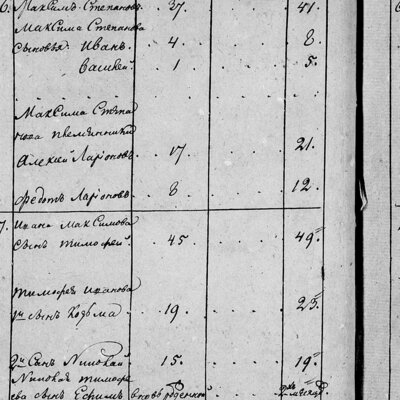 6. Максимъ Степановъ 37 . . . . 41.
Максима Степанова
сыновья Иванъ . 4 . . . . 8
Василей . 1 . . . . 5.
Максима Степа
нова племянники
Алексей Ларионовъ 17 . . . . 21.
Федотъ Ларионовъ 8 . . . . 12.
7. Ивана Максимова
сынъ Тимофей 45 . . . . 49
Тимофея Иванова
1й сынъ Козьма . 19 . . . . 23.
2й Сынъ Николай 15. . . . . 19
Николая Тимофе
ева сынъ Ефимъ вновь рожденной